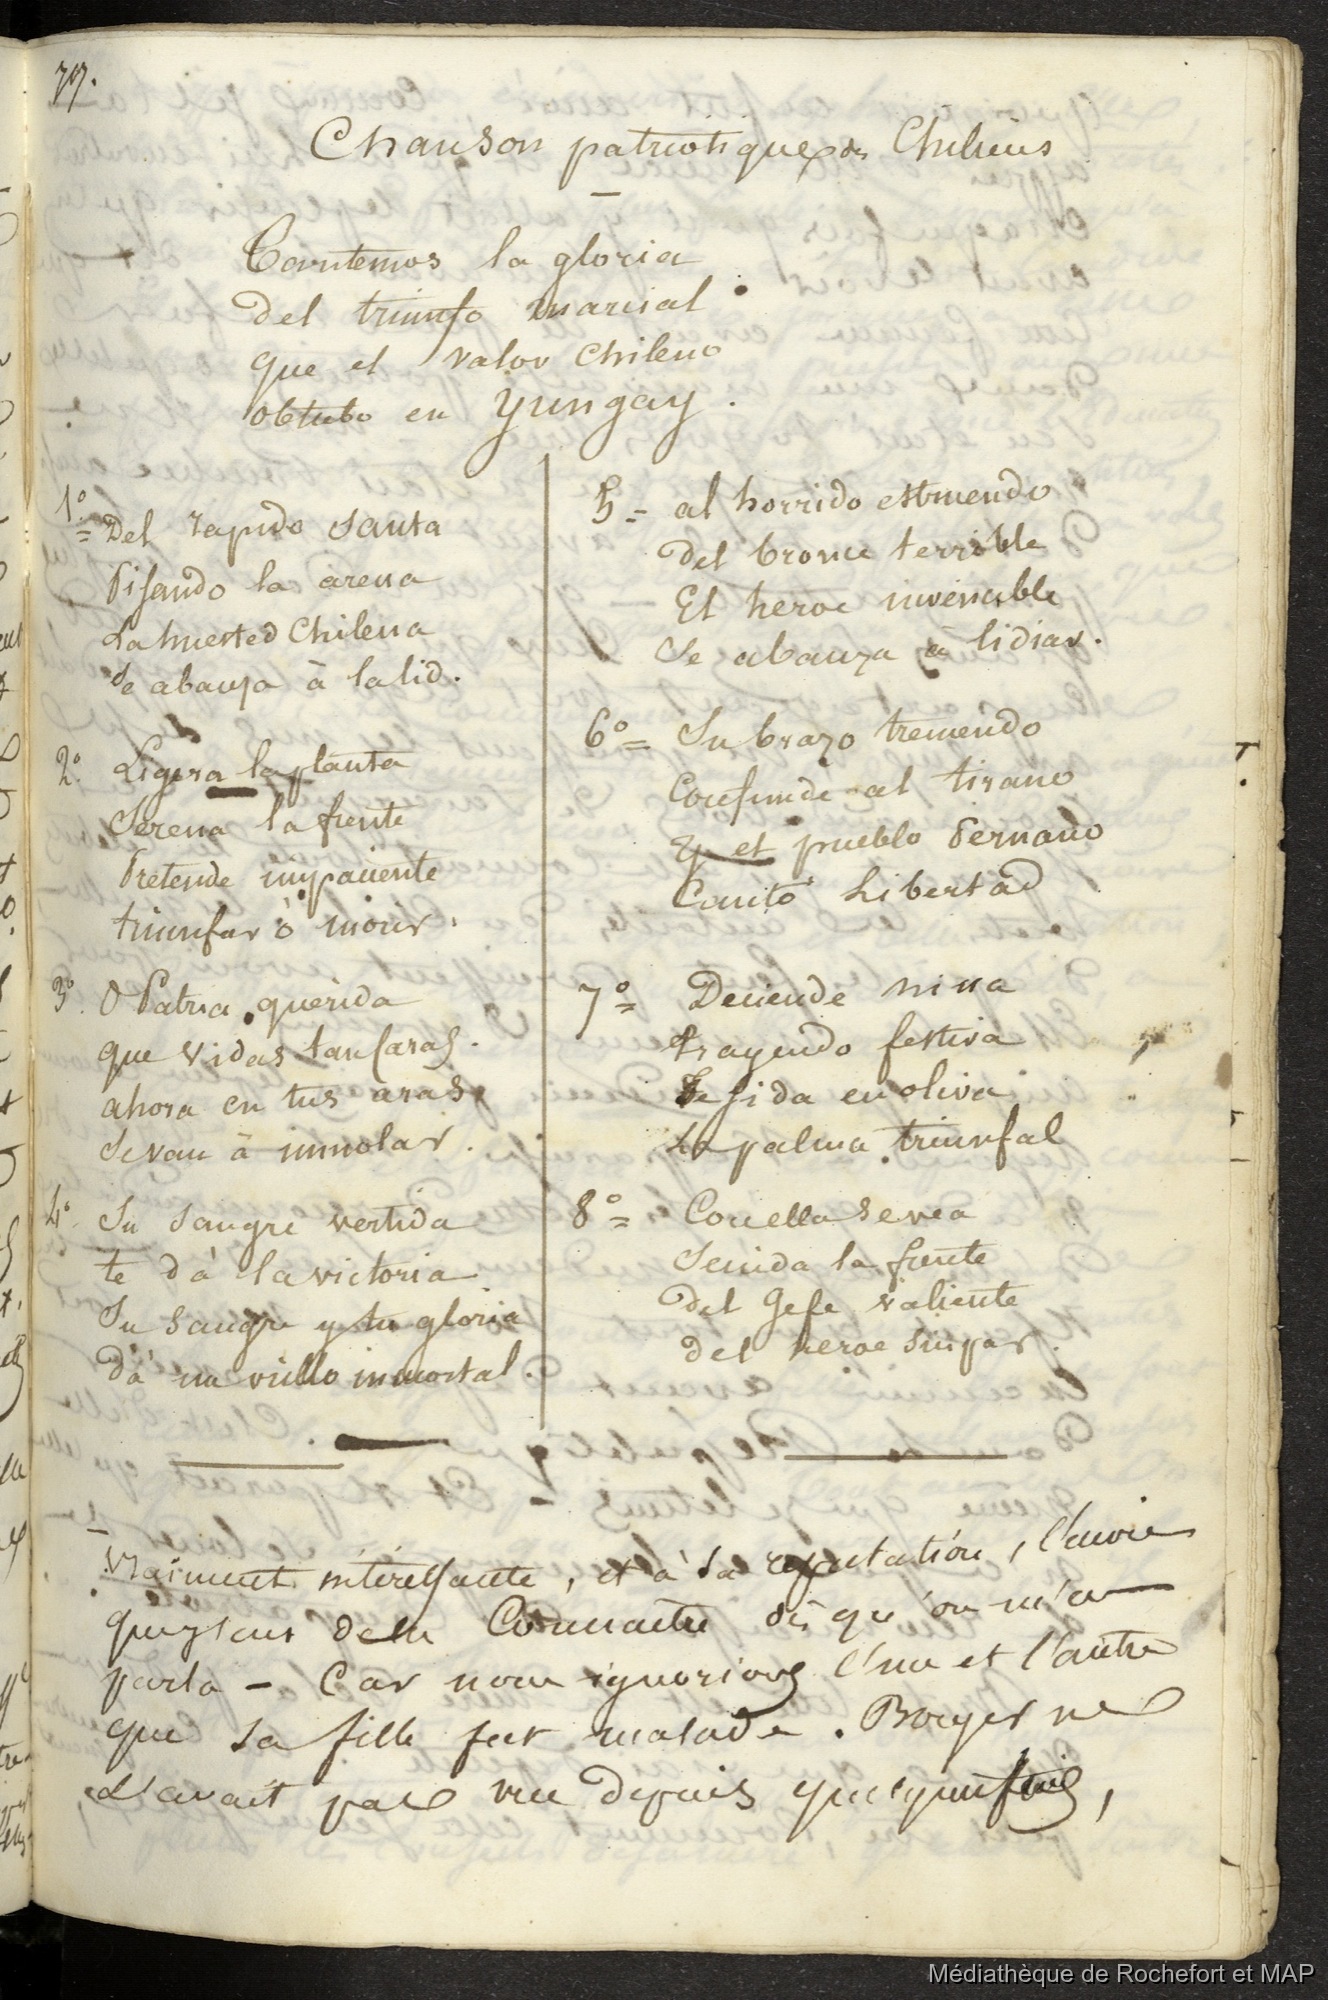 77.
Chanson patriotique des Chiliens
Cantemos la gloria
Del triunfo marcial
que el valor chileno
obtubo en Yungay.
1º = Del rapido Santa
Pisando la arena
La huested Chilena
Se abanza à la lid.
2º. Ligera la planta
Serena la frente
Pretende impaciente
triunfar ò morir.
3º. O Patria querida
que vidas tan caras.
ahora en tus aras
Se van à inmolar.
4º. Su sangre vertida
te dà la victoria
Su sangre y tu gloria
Dà un brillo inmortal.
5 = al horrido estruendo
Del bronce terrible
El heroe invencible
Se abanza à lidiar.
6º = Su brazo tremendo
Confunde al tirano
Y el pueblo Peruano
Cantó Libertad
7º = Deciende nina
trayendo festiva
Tejida en oliva
La palma triunfal
8º = Con ella se vea
Senida la frente
Del Gefe valiente
Del heroe sinpar.
Vraiment intéressante, et à sa réputation, l'envie
de la Connaitre dès qu'on m'en
parla - Car nous ignorions l'un et l'autre
que sa fille fut malade. Borger ne
L'avait pas vue depuis quelque fois,
Médiathèque de Rochefort et MAP